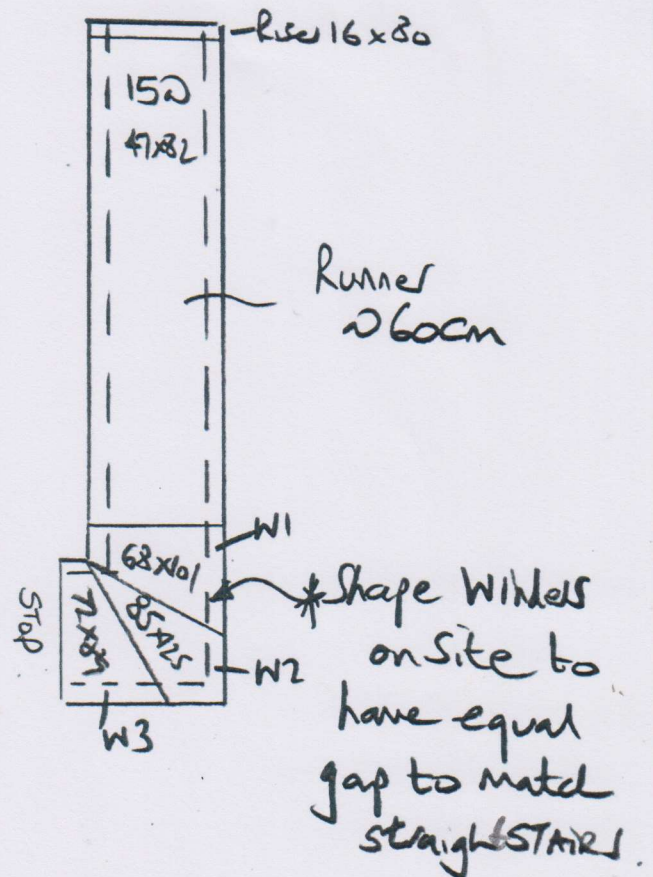 Riser 16x80
15
47x82
Runner
60cm
W1
68x101
85x125
W2
STOP
W3
*Shape Winders
on Site to
have equal
gap to match
straight STAIRS.